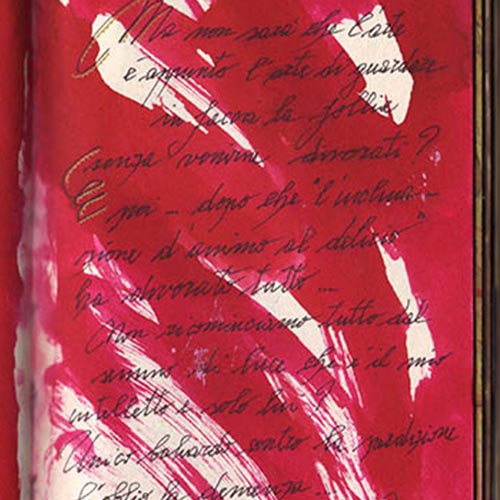 Ma non sarà che l'arte
è appunto l'arte di guardare
in faccia la follia
senza venirne divorati?
E poi – dopo che "l'inclina-
zione d'animo al delirio"
ha divorato tutto...
Non ricominciamo tutto dal
seme di luce che è il mio
intelletto e solo lui?
Unico baluardo contro la perdizione
l'oblio la demenza...